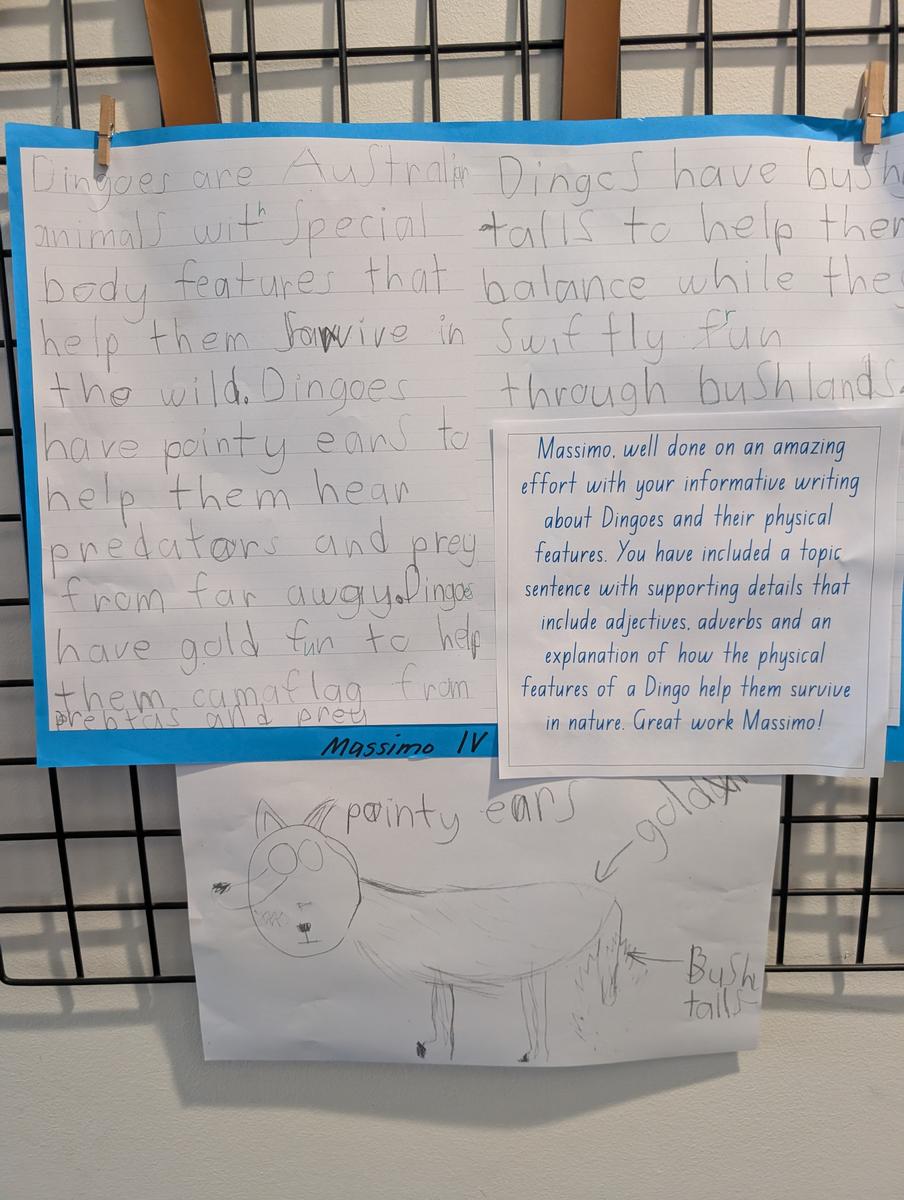 Dingoes are Australian
animals with Special
body features that
help them Survive in
the wild. Dingoes
have pointy ears to
help them hear
predators and prey
from far away. Dingoes
have gold fun to help
them camaflag from
predtas and prey
Dingos have bush
talls to help them
balance while they
Swiftly run
through bushlands.
Massimo, well done on an amazing
effort with your informative writing
about Dingoes and their physical
features. You have included a topic
sentence with supporting details that
include adjectives, adverbs and an
explanation of how the physical
features of a Dingo help them survive
in nature. Great work Massimo!
Massimo IV
pointy ears
gold
Bush
talls